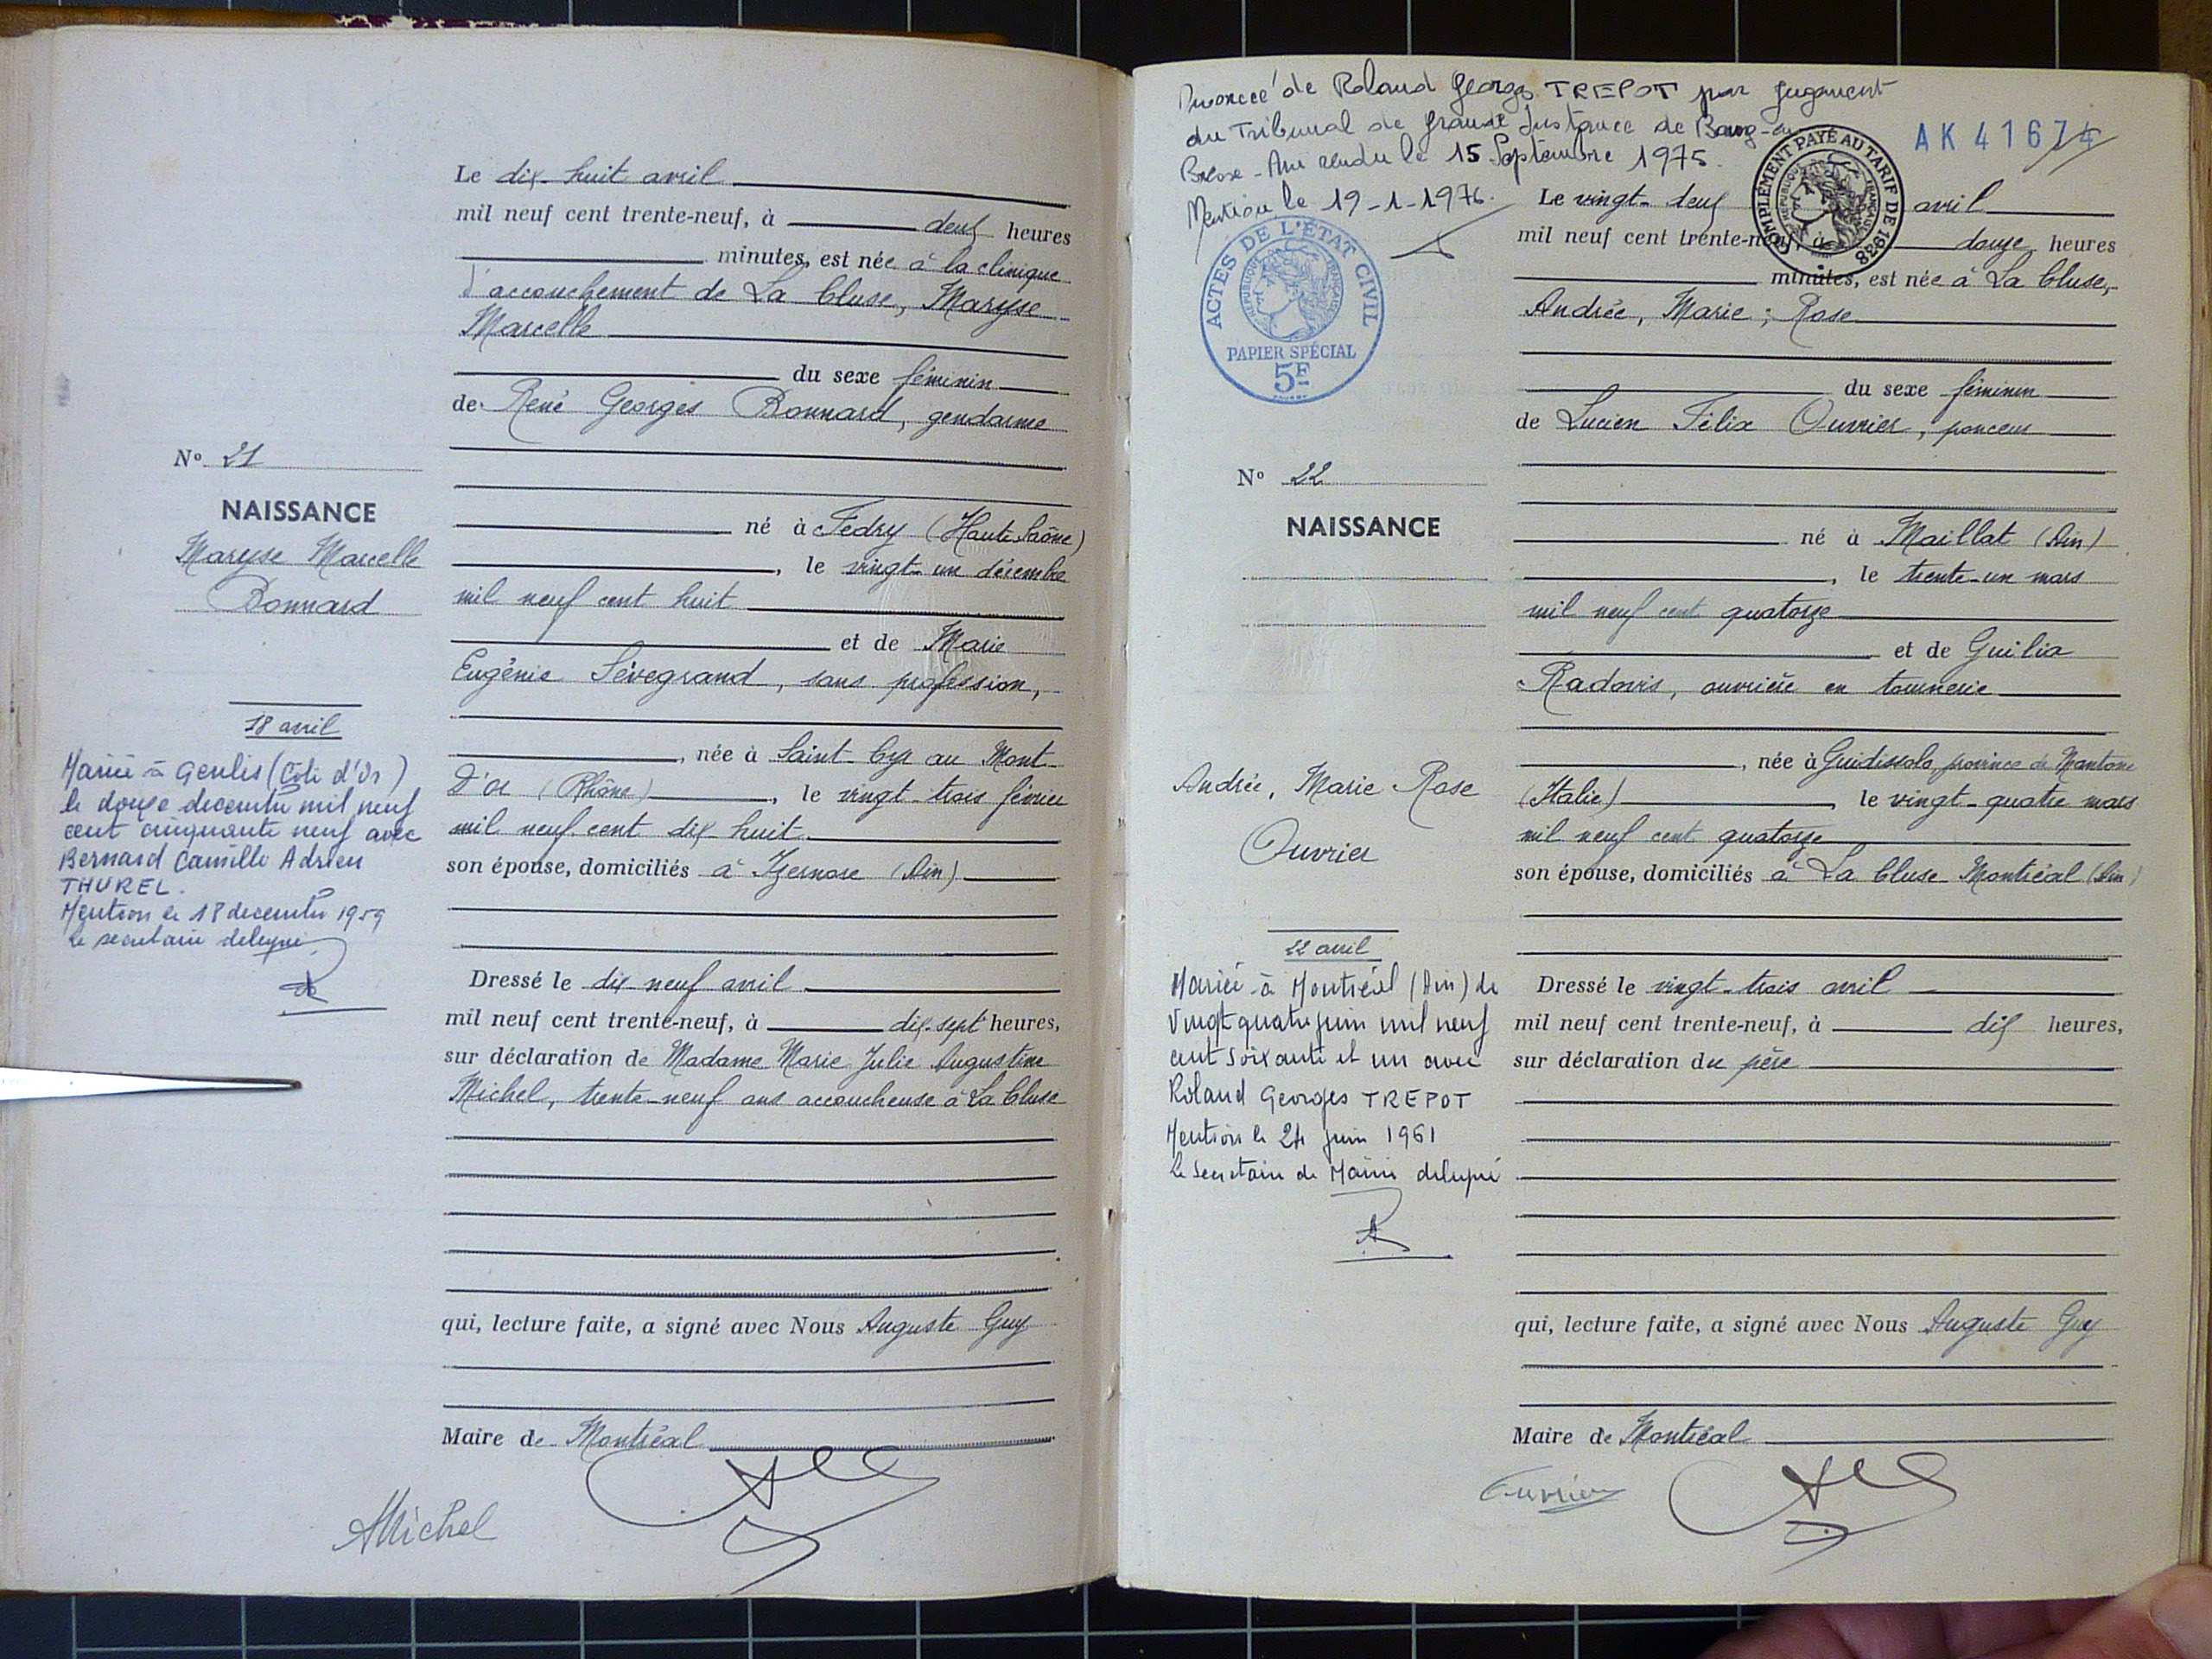 Le dix-huit avril
mil neuf cent trente-neuf, à deux heures
minutes, est née à la clinique
d'accouchement de La Cluse, Maryse
Marcelle
du sexe féminin
de René Georges Bonnard, gendarme
né à Fédry (Haute Saône)
, le vingt-un décembre
mil neuf cent huit
et de Marie
Eugénie Sévegrand, sans profession,
, née à Saint-Cyr au Mont-
D'Or (Rhône), le vingt-trois février
mil neuf cent dix-huit
son épouse, domiciliés à Izernore (Ain)
Dressé le dix-neuf avril
mil neuf cent trente-neuf, à dix-sept heures,
sur déclaration de Madame Marie Julie Augustine
Michel, trente-neuf ans accoucheuse à La Cluse
qui, lecture faite, a signé avec Nous Auguste Guy
Maire de Montréal
AMichel
N° 21
NAISSANCE
Maryse Marcelle
Bonnard
18 avril
Mariée à Genlis (Côte d'Or)
le douze decembre mil neuf
cent cinquante neuf avec
Bernard Camille Adrien
THUREL.
Mention le 18 decembre 1959
Le secretaire delegué
Divorcée de Roland Georges TREPOT par jugement
du Tribunal de Grande Instance de Bourg-en
Bresse - Ain rendu le 15 Septembre 1975.
Mention le 19-1-1976.
AK 41674
COMPLÉMENT PAYÉ AU TARIF DE 1938
RÉPUBLIQUE FRANÇAISE
ACTES DE L'ÉTAT CIVIL
RÉPUBLIQUE FRANÇAISE
PAPIER SPÉCIAL
5F
Le vingt-deux avril
mil neuf cent trente-neuf, à douze heures
minutes, est née à La Cluse,
Andrée, Marie, Rose
du sexe féminin
de Lucien Félix Ouvrier, ponceur
né à Maillat (Ain)
, le trente-un mars
mil neuf cent quatorze
et de Guilia
Radovis, ouvrière en tournerie
, née à Guidissolo, province de Mantone
(Italie) le vingt-quatre mars
mil neuf cent quatorze
son épouse, domiciliés à La Cluse-Montréal (Ain)
Dressé le vingt-trois avril
mil neuf cent trente-neuf, à dix heures,
sur déclaration du père
qui, lecture faite, a signé avec Nous Auguste Guy
Maire de Montréal
Ouvrier
N° 22
NAISSANCE
Andrée, Marie Rose
Ouvrier
22 avril
Mariée à Montréal (Ain) le
Vingt quatre juin mil neuf
cent soixante et un avec
Roland Georges TREPOT
Mention le 24 juin 1961
Le Secretaire de Mairie delegué